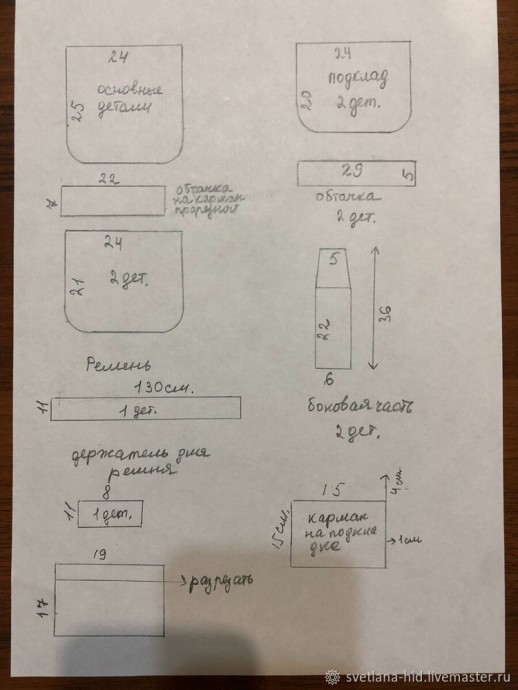 24
25
основные
детали
22
7
обтачка
на карман
прорезной
24
21
2 дет.
Ремень
130см.
11
1 дет.
держатель для
ремня
8
11
1 дет.
19
17
разрезать
24
20
подклад
2 дет.
29
5
обтачка
2 дет.
5
22
36
6
боковая часть
2 дет.
15
4 см
15 см.
карман
на подкла
дке
1см
svetlana-hid.livemaster.ru